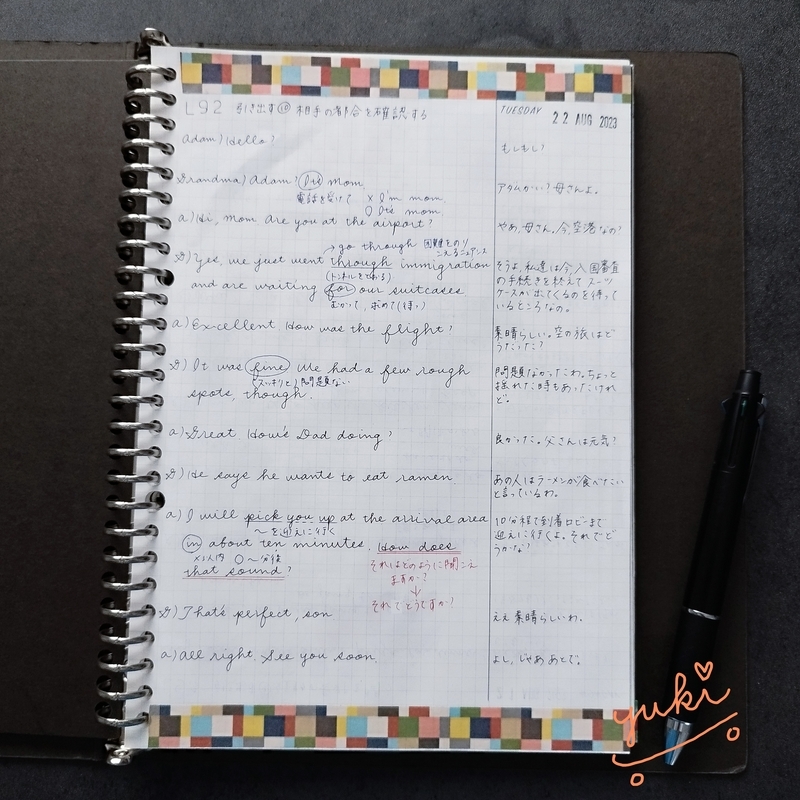 L92 引き出す⑩ 相手の都合を確認する
TUESDAY
22 AUG 2023
Adam) Hello?
もしもし?
Grandma) Adam? It's mom.
電話を受けて × I'm mom
○ It's mom
アダムかい? 母さんよ。
a) Hi, Mom. Are you at the airport?
やあ、母さん。今、空港なの?
→ go through 困難をのり
こえるニュアンス
g) Yes, we just went through immigration
(トンネルをとおる)
and are waiting for our suitcases.
むかって、求めて(待つ)
そうよ、私達は今入国審査
の手続きを終えて スーツ
ケースが出てくるのを待って
いるところなの。
a) Excellent How was the flight?
素晴らしい。空の旅はど
うだった?
g) It was fine We had a few rough
(スッキリと) 問題ない
spots, though.
問題なかったわ。ちょっと
揺れた時もあったけれ
ど。
a) Great. How's Dad doing?
良かった。父さんは元気?
g) He says he wants to eat ramen.
あの人はラーメンが食べたい
と言っているわ。
a) I will pick you up at the arrival area
〜を迎えに行く
in about ten minutes. How does
×以内 ○〜分後
that sound?
それはどのように聞こえ
ますか?
↓
それでどうですか?
10分程で到着ロビーまで
迎えに行くよ。それでど
うかな?
g) That's perfect, son
ええ 素晴らしいわ。
a) All right. See you soon.
よし、じゃあ あとで。
yuki